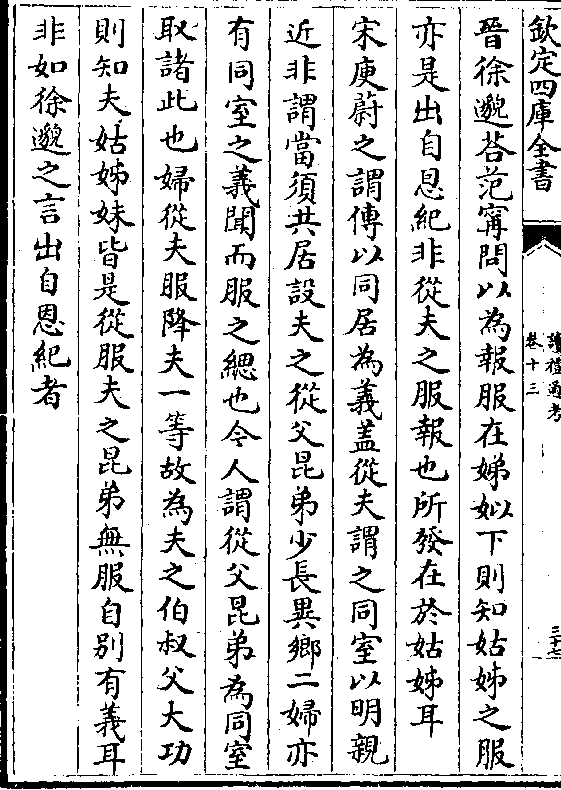 欽定四庫全書
讀禮通考
卷十三
三十七
晉徐邈荅范甯問以為報服在娣姒下則知姑姊之服
亦是出自恩紀非從夫之服報也所發在於姑姊耳
宋庾蔚之謂傳以同居為義蓋從夫謂之同室以明親
近非謂當須共居設夫之從父昆弟少長異鄉二婦亦
有同室之義聞而服之緦也今人謂從父昆弟為同室
取諸此也婦從夫服降夫一等故為夫之伯叔父大功
則知夫姑姊妹皆是從服夫之昆弟無服自别有義耳
非如徐邈之言出自恩紀者